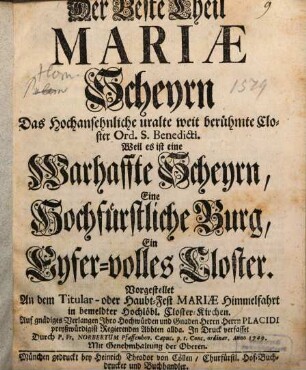 Der Beste Theil
9
MARIÆ
Scheyrn
1589
Das Hochansehnliche uralte weit berühmte Clo-
ster Ord. S. Benedicti.
Weil es ist eine
Warhaffte Scheyrn,
Eine
Hochfürstliche Burg,
Ein
Eyfer-volles Closter.
Vorgestellet
An dem Titular- oder Haubt-Fest MARIÆ Himmelfahrt
in bemeldter Hochlöbl. Closter-Kirchen.
Auf gnädiges Verlangen Ihro Hochwürden und Gnaden Herrn Herrn PLACIDI
preyßwürdigist Regierenden Abbten allda. In Druck verfasset
Durch P. Fr. NORBERTUM Pfaffenhov. Capuc. p. t. Conc. ordinar. Anno 1729.
Mit Genehmhaltung der Oberen.
München gedruckt bey Heinrich Theodor von Cöllen, Churfürstl. Hof-Buch-
drucker und Buchhandler.